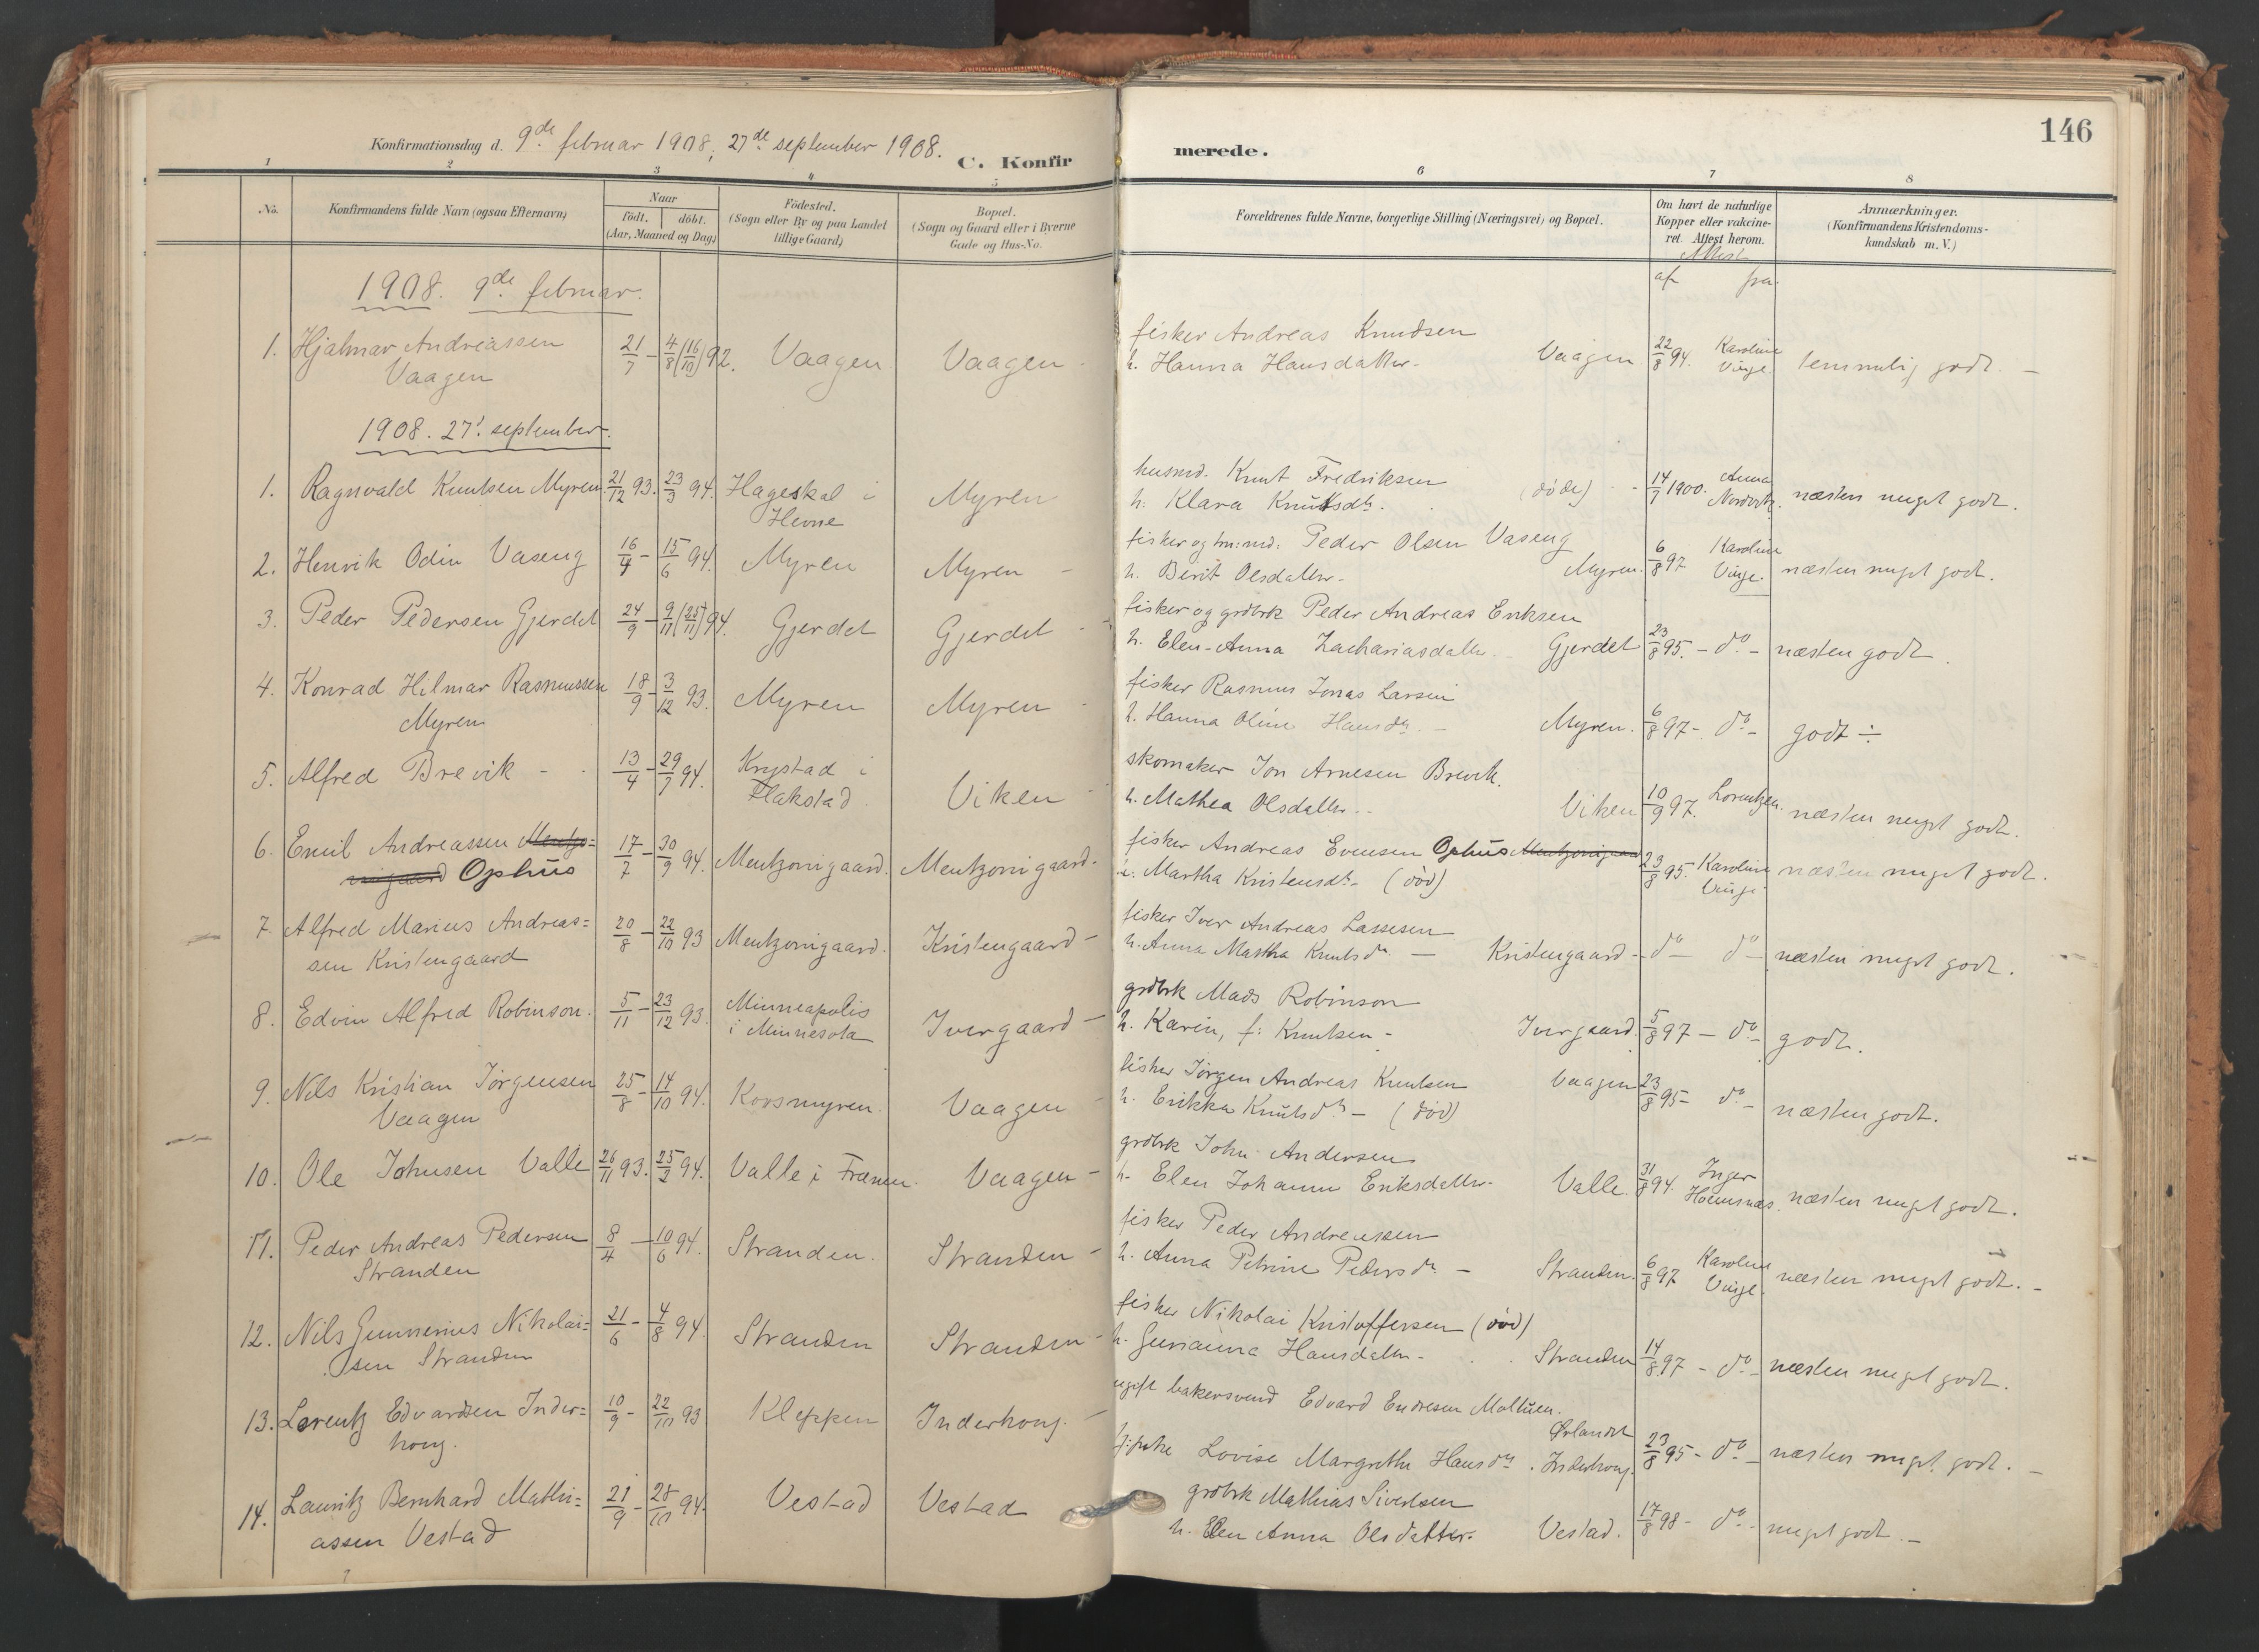 146
Konfirmationsdag d. 9de februar 1908, 27de september 1908.
C. Konfirmerede.
1 2 3 4 5 6 7 8
No.
Konfirmandens fulde Navn (ogsaa Efternavn)
Naar
födt. döbt.
(Aar, Maaned og Dag)
Födested.
(Sogn eller By og paa Landet
tillige Gaard)
Bopæl.
(Sogn og Gaard eller i Byerne
Gade og Hus-No.
Forældrenes fulde Navne, borgerlige Stilling (Næringsvei) og Bopæl.
Om havt de naturlige
Kopper eller vakcine-
ret. Attest herom.
Anmærkninger.
(Konfirmandens Kristendoms-
kundskab m. V.)
Attest
af fra
1908. 9de februar.
1. Hjalmar Andreassen
Vaagen
21/7 - 4/8 (16/10) 92. Vaagen Vaagen -
fisker Andreas Knudsen
h. Hanna Hansdatter - Vaagen 22/8 94. Karoline Vinge. temmelig godt. -
1908. 27' september.
1. Ragnvald Knutsen Myren 21/12 93. 23/3 94. Hageskal i
Hevne
Myren
husmd. Knut Fredriksen
h. Klara Knutsdtr. (døde) - 14/7 1900. Anna næsten meget godt.
2. Henrik Odin Vaseng 16/4 - 15/6 94. Myren Myren -
fisker og hu:md: Peder Olsen Vaseng
h. Berit Olsdatter - Myren. 6/8 97 Karoline Vinge. næsten meget godt.
3. Peder Pedersen Gjerdet 24/9 - 9/11 (25/11) 94. Gjerdet Gjerdet -
fisker og grdbrk Peder Andreas Eriksen
h. Elen-Anna Zachariasdatter - Gjerdet 23/8 95. - do - næsten godt.
4. Konrad Hilmar Rasmussen
Myren
18/9 - 3/12 93. Myren Myren -
fisker Rasmus Jonas Larsen
h. Hanna Oline Hansdtr. - Myren. 6/8 97 - do - godt ÷
5. Alfred Brevik - 13/4 - 29/7 94. Krystad i
Flakstad.
Viken
skomaker Jon Arnesen Brevik.
h. Mathea Olsdatter - Viken 10/9 97. Lorentzen. næsten meget godt.
6. Emil Andreassen Mentzo=
nigaard Ophus
17/7 - 30/9 94. Mentzonigaard. Mentzonigaard.
fisker Andreas Evensen Ophus Mentzonigaard
h. Martha Kristensdtr - (død) 23/8 95. Karoline Vinge næsten meget godt.
7. Alfred Marius Andreas=
sen Kristengaard
20/8 - 22/10 93 Mentzonigaard. Kristengaard -
fisker Iver Andreas Lassesen
h. Anna Martha Knutsdtr. - Kristengaard - do - do - næsten meget godt.
8. Edvin Alfred Robinson. 5/11 - 23/12 93. Minneapolis
i Minnesota
Ivergaard -
grdbrk Mads Robinson
h. Karin, f: Knutsen - Ivergaard. 5/8 97 - do - godt.
9. Nils Kristian Jørgensen
Vaagen
25/8 - 14/10 94. Korsmyren. Vaagen -
fisker Jørgen Andreas Knutsen Vaagen
h. Erikka Knutsdtr - (død) 23/8 95 - do - næsten godt.
10. Ole Johnsen Valle 26/11 93. 25/2 94. Valle i Frænen. Vaagen -
grdbrk John Andersen
h. Elen Johanne Eriksdatter - Valle. 31/8 94. Inger næsten meget godt.
11. Peder Andreas Pedersen
Stranden
8/4 - 10/6 94. Stranden. Stranden -
fisker Peder Andreassen
h. Anna Petrine Pedersdtr. - Stranden. 6/8 97 Karoline Vinge. næsten meget godt. -
12. Nils Gunnerius Nikolai=
sen Stranden
21/6 - 4/8 94. Stranden Stranden -
fisker Nikolai Kristoffersen (død)
h. Hansdatter - Stranden 14/8 97 - do - næsten meget godt.
13. Lorentz Edvardsen Inder=
houg.
10/9 - 22/10 93 Kleppen Inderhoug. -
ugift bakersvend Edvard Endresen
Ørlandet
Lovise Margrethe Hansdtr. Inderhoug. 23/8 95 - do - næsten meget godt. -
14. Lauritz Bernhard Mathi=
assen Vestad
21/9 - 28/10 94. Vestad Vestad
grdbrk Mathias Sivertsen
h. Elen Anna Olsdatter - Vestad. 17/8 98 - do - meget godt. -